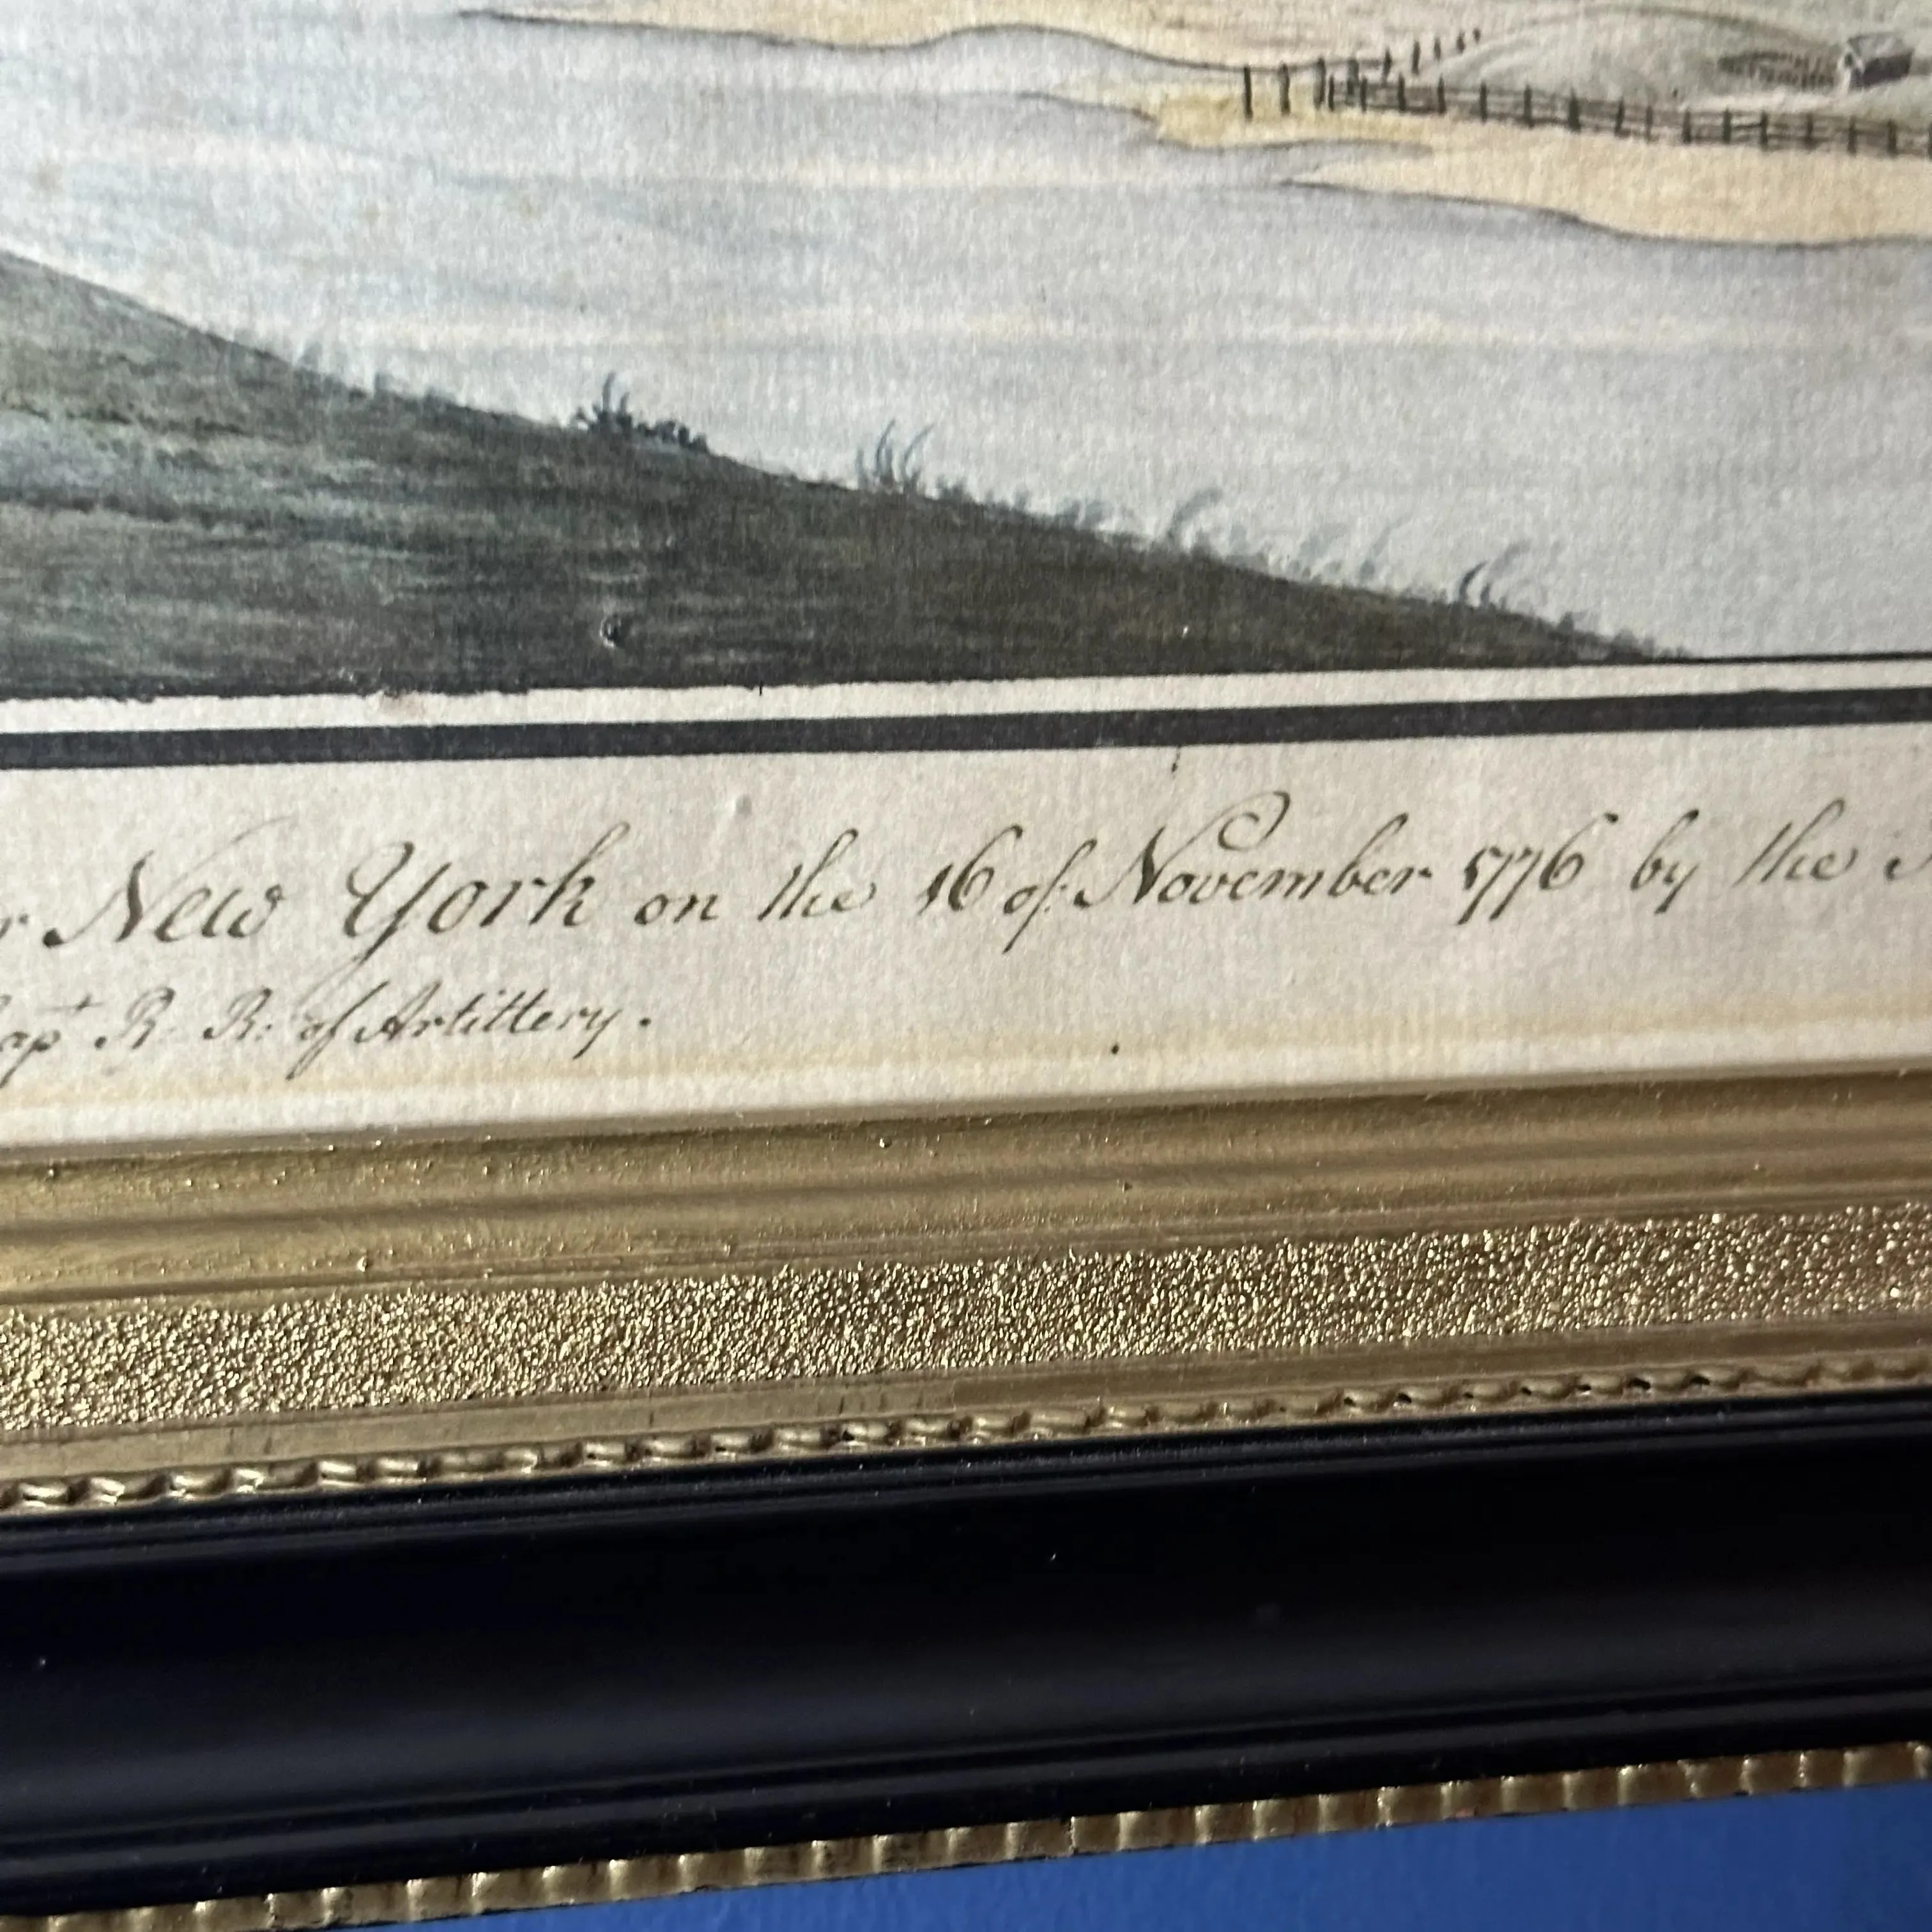 New York on the 16 of November 1776 by the
apt R. R: of Artittery.